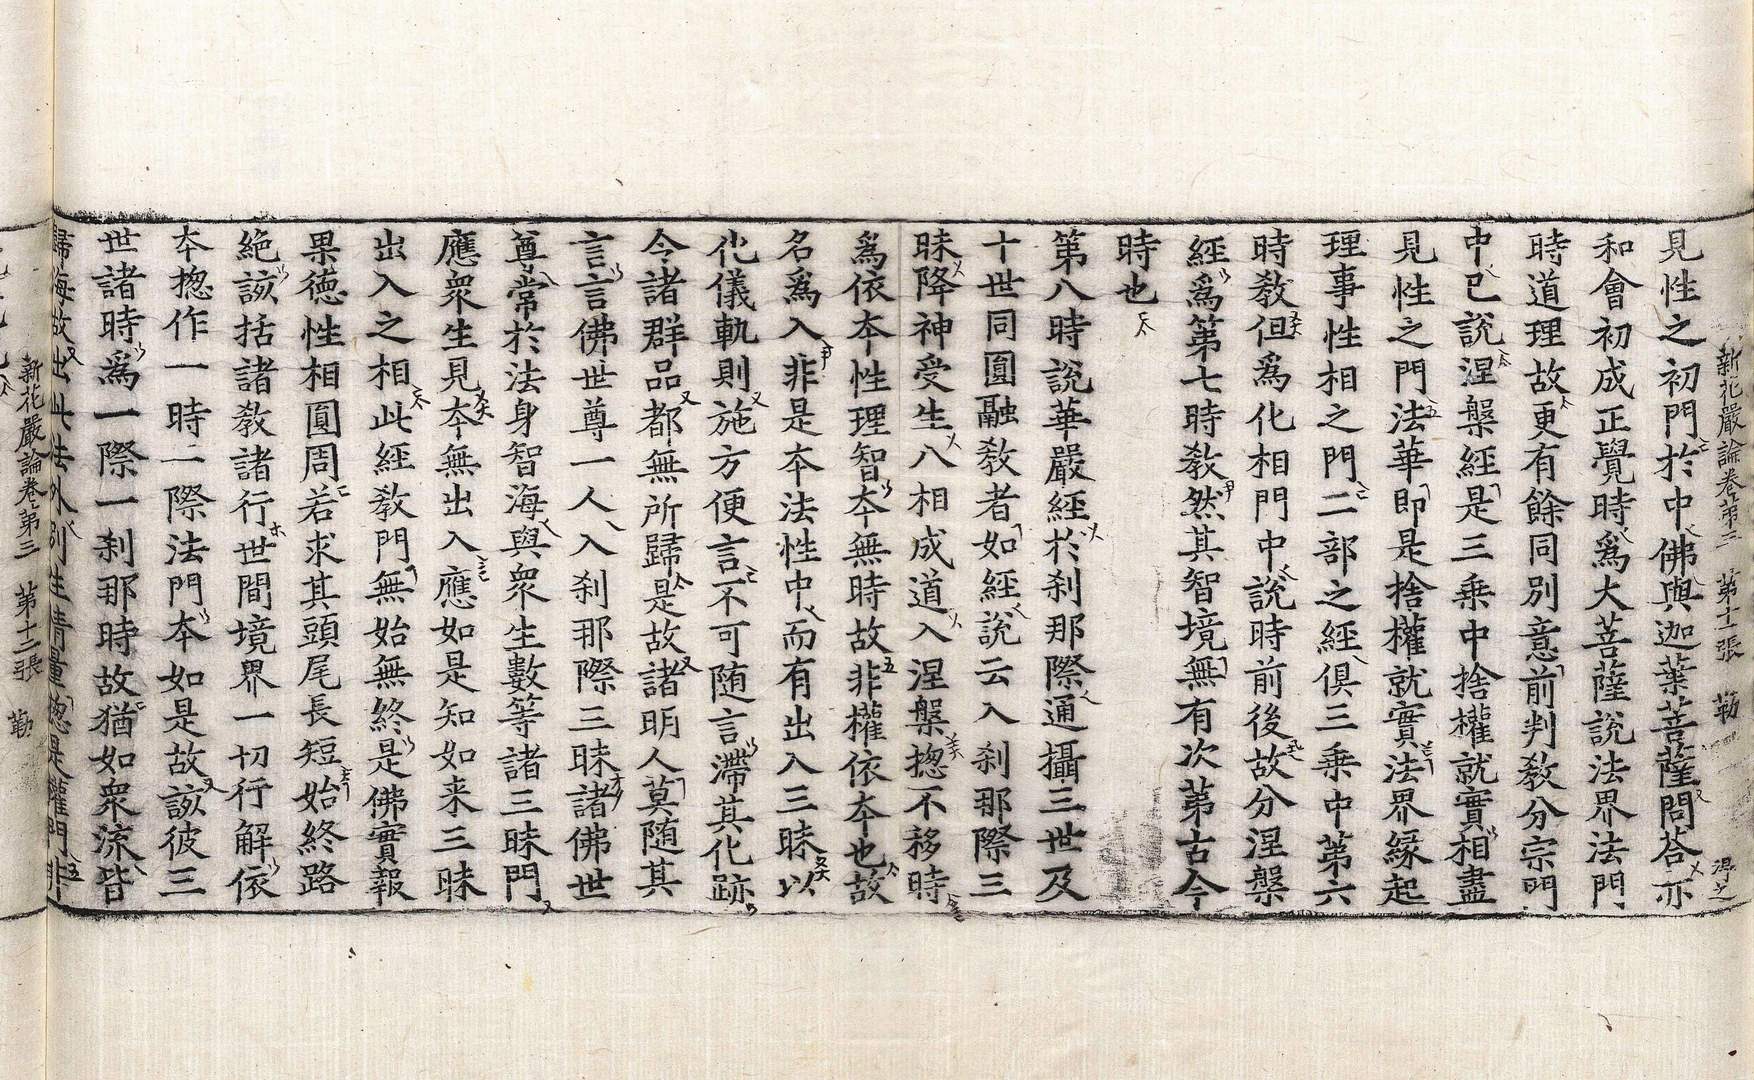 新花嚴論卷第三　第十二張　勒
見性之初門於中佛與迦葉菩薩問荅亦
和會初成正覺時爲大菩薩說法界法門
時道理故更有餘同別意前判教分宗門
中已說涅槃經是三乗中捨權就實相盡
見性之門法華即是捨權就實法界緣起
理事性相之門二部之經俱三乗中第六
時教但爲化相門中說時前後故分涅槃
經爲第七時教然其智境無有次第古今
時也
第八時說華嚴經於刹那際通攝三世及
十世同圓融教者如經說云入刹那際三
昧降神受生八相成道入涅槃揔不移時
爲依夲性理智夲無時故非權依夲也故
名爲入非是夲法性中而有出入三昧以
化儀軌則施方便言不可随言滯其化跡
令諸群品都無所歸是故諸明人莫随其
言言佛世尊一人入刹那際三昧諸佛世
尊常於法身智海與衆生數等諸三昧門
應衆生見夲無出入應如是知如来三昧
出入之相此經教門無始無終是佛實報
果德性相圓周若求其頭尾長短始終路
絶該括諸教諸行世間境界一切行解依
夲揔作一時一際法門夲如是故該彼三
世諸時爲一際一刹那時故猶如衆流皆
歸海故出此法外別生情量揔是權門非
新花嚴論卷第三　第十三張　勒